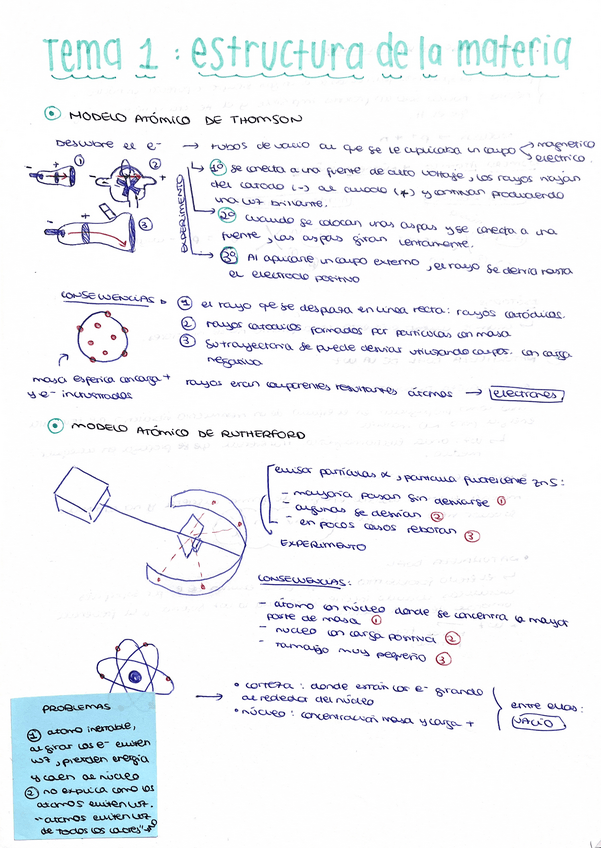 Tema 1 : estructura de la materia
MODELO ATÓMICO DE THOMSON
Descubre el e- → tubos de vacío al que se le aplicaba un campo < magnético
eléctrico.
EXPERIMENTO
1º se conecta a una fuente de alto voltaje, los rayos viajan
del cátodo (-) al ánodo (+) y continan produciendo
una luz brillante.
2º Cuando se colocan unas aspas y se conecta a una
fuente, las aspas giran lentamente.
3º Al aplicarle un campo externo, el rayo se desvía hasta
el electrodo positivo
- + 1
- + 2
- + 3
CONSECUENCIAS
1 el rayo que se desplaza en línea recta: rayos catódicos.
2 rayos catódicos formados por partículas con masa
3 Su trayectoria se puede desviar utilizando campos. con carga
negativa
masa esférica con carga +
y e- incrustados
rayos eran componentes resultantes átomos → electrones
MODELO ATÓMICO DE RUTHERFORD
emisor partículas α, partícula fluorescente ZnS:
- mayoría pasan sin desviarse 1
- algunas se desvían 2
- en pocos casos rebotan 3
EXPERIMENTO
CONSECUENCIAS:
- átomo con núcleo donde se concentra la mayor
parte de masa 1
- núcleo con carga positiva 2
- tamaño muy pequeño 3
→ • corteza: donde están los e- girando
alrededor del núcleo
• núcleo: concentración masa y carga +
entre ellas:
VACÍO
PROBLEMAS
1 átomo inestable,
al girar los e- emiten
luz, pierden energía
y caen al núcleo
2 no explica como los
átomos emiten luz.
"átomos emiten luz
de todos los colores" → NO